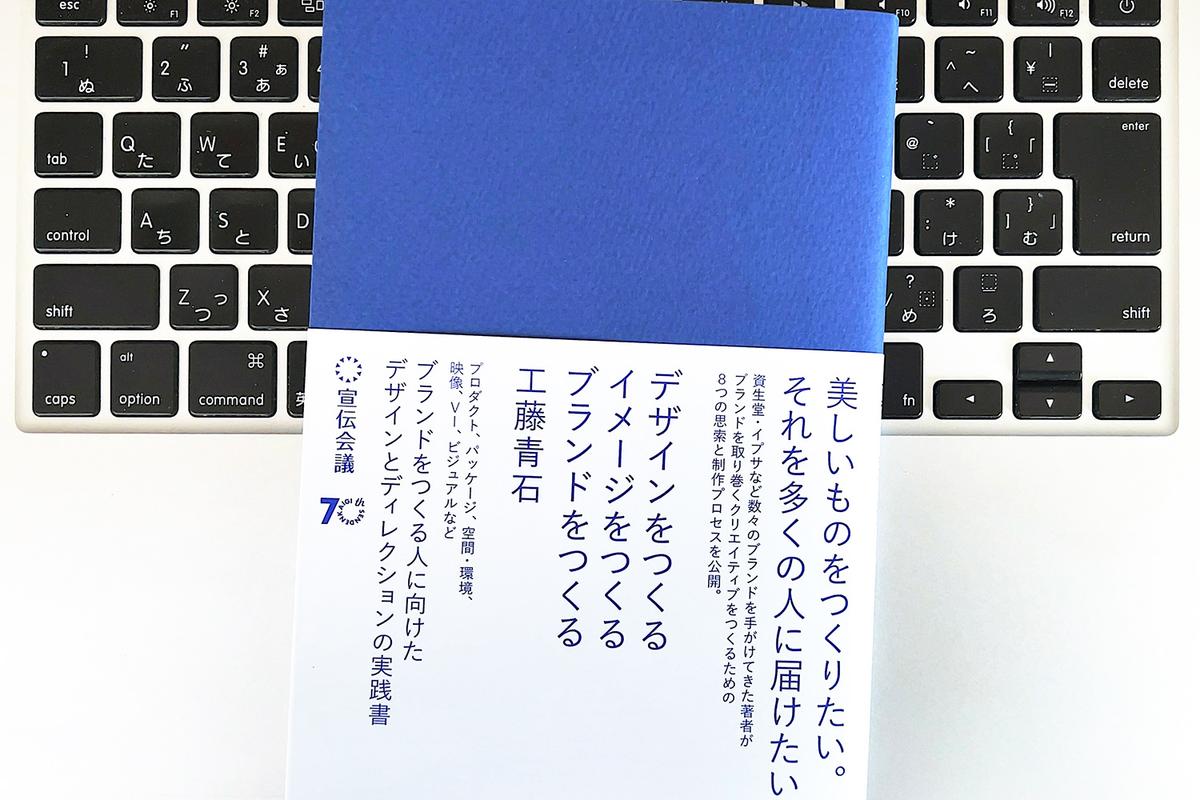 美しいものをつくりたい。
それを多くの人に届けたい
資生堂・イプサなど数々のブランドを手がけてきた著者が
ブランドを取り巻くクリエイティブをつくるための
8つの思索と制作プロセスを公開。
デザインをつくる
イメージをつくる
ブランドをつくる
工藤青石
プロダクト、パッケージ、空間・環境、
映像、VI、ビジュアルなど
ブランドをつくる人に向けた
デザインとディレクションの実践書
宣伝会議
70th
SENDENKAIGI
esc
F1
F2
F10
F11
F12
! 1 ぬ
" 2 ふ
# 3 ぁ あ
~ ^ へ
| ¥ ー
delete
tab
Q た
W て
E い
` @ ゛
{ [ 「 ゜
enter
return
control
A ち
S と
D
* : け
} ] 」 む
shift
Z っ つ
X さ
? / め
ろ
shift
caps
alt
option
⌘
command
英
fn